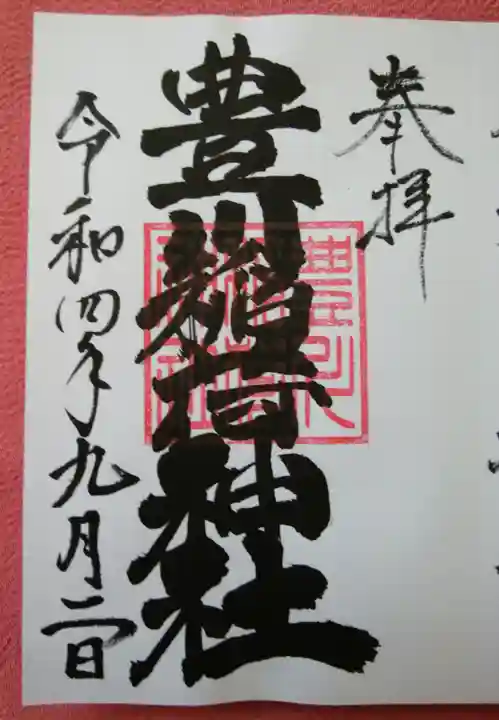 奉拝
豊川稲荷神社
令和四年九月二日